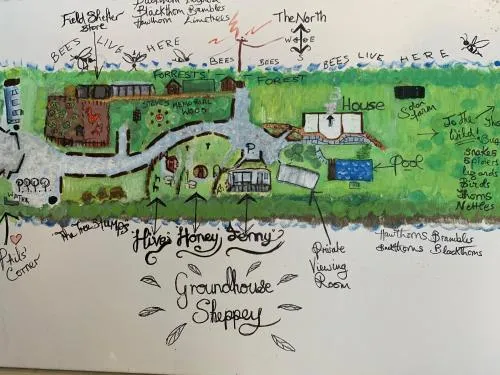 Blackthorn Brambles
Hawthorn Limetrees
Field Shelter
Store
The North
W E
S
BEES LIVE HERE
BEES
BEES
BEES LIVE HERE
FORRESTS'
FOREST
STEVE'S MEMORIAL
WOOD
House
Solar
farm
To the
Wild!
Snakes
Spiders
Lizards
Birds
Thorns
Nettles
P
Pool
PPPP
WATER
The Tree Stumps
Phils'
Corner
"Hive" "Honey" "Jenny"
Private
Viewing
Room
Hawthorns Brambles
Blackthorns
Groundhouse
Sheppey